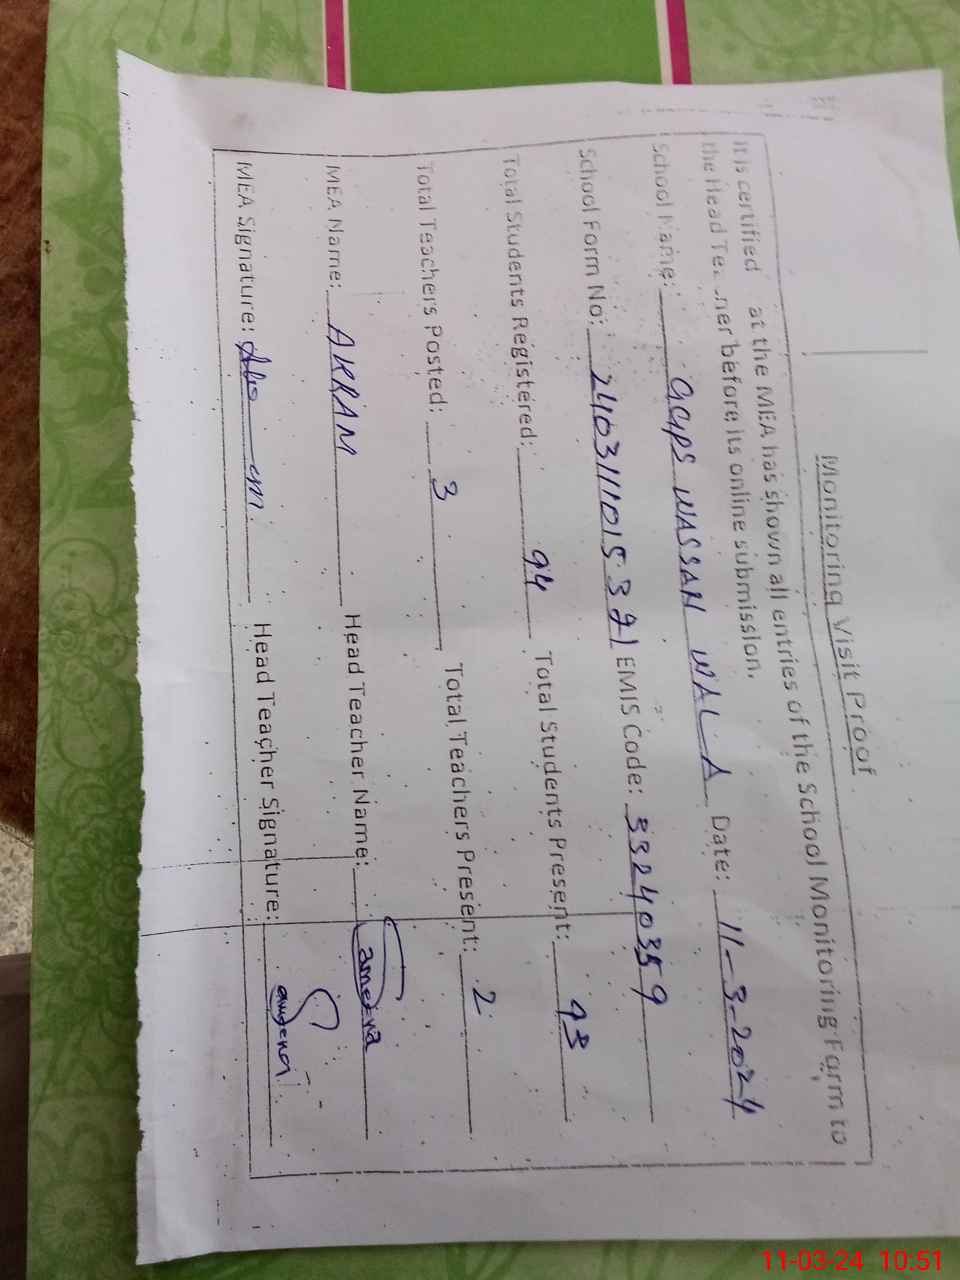 Monitoring Visit Proof
It is certified at the MEA has shown all entries of the School Monitoring Form to
the Head Te ner before its online submission.
School Name: GGPS WASSAN WALA Date: 11-3-2024
School Form No: 24031101537 1 EMIS Code: 33240359
Total Students Registered: 94 Total Students Present: 93
Total Teachers Posted: 3 Total Teachers Present: 2
MEA Name: AKRAM Head Teacher Name: Sameena
MEA Signature: Head Teacher Signature:
11-03-24 10:51